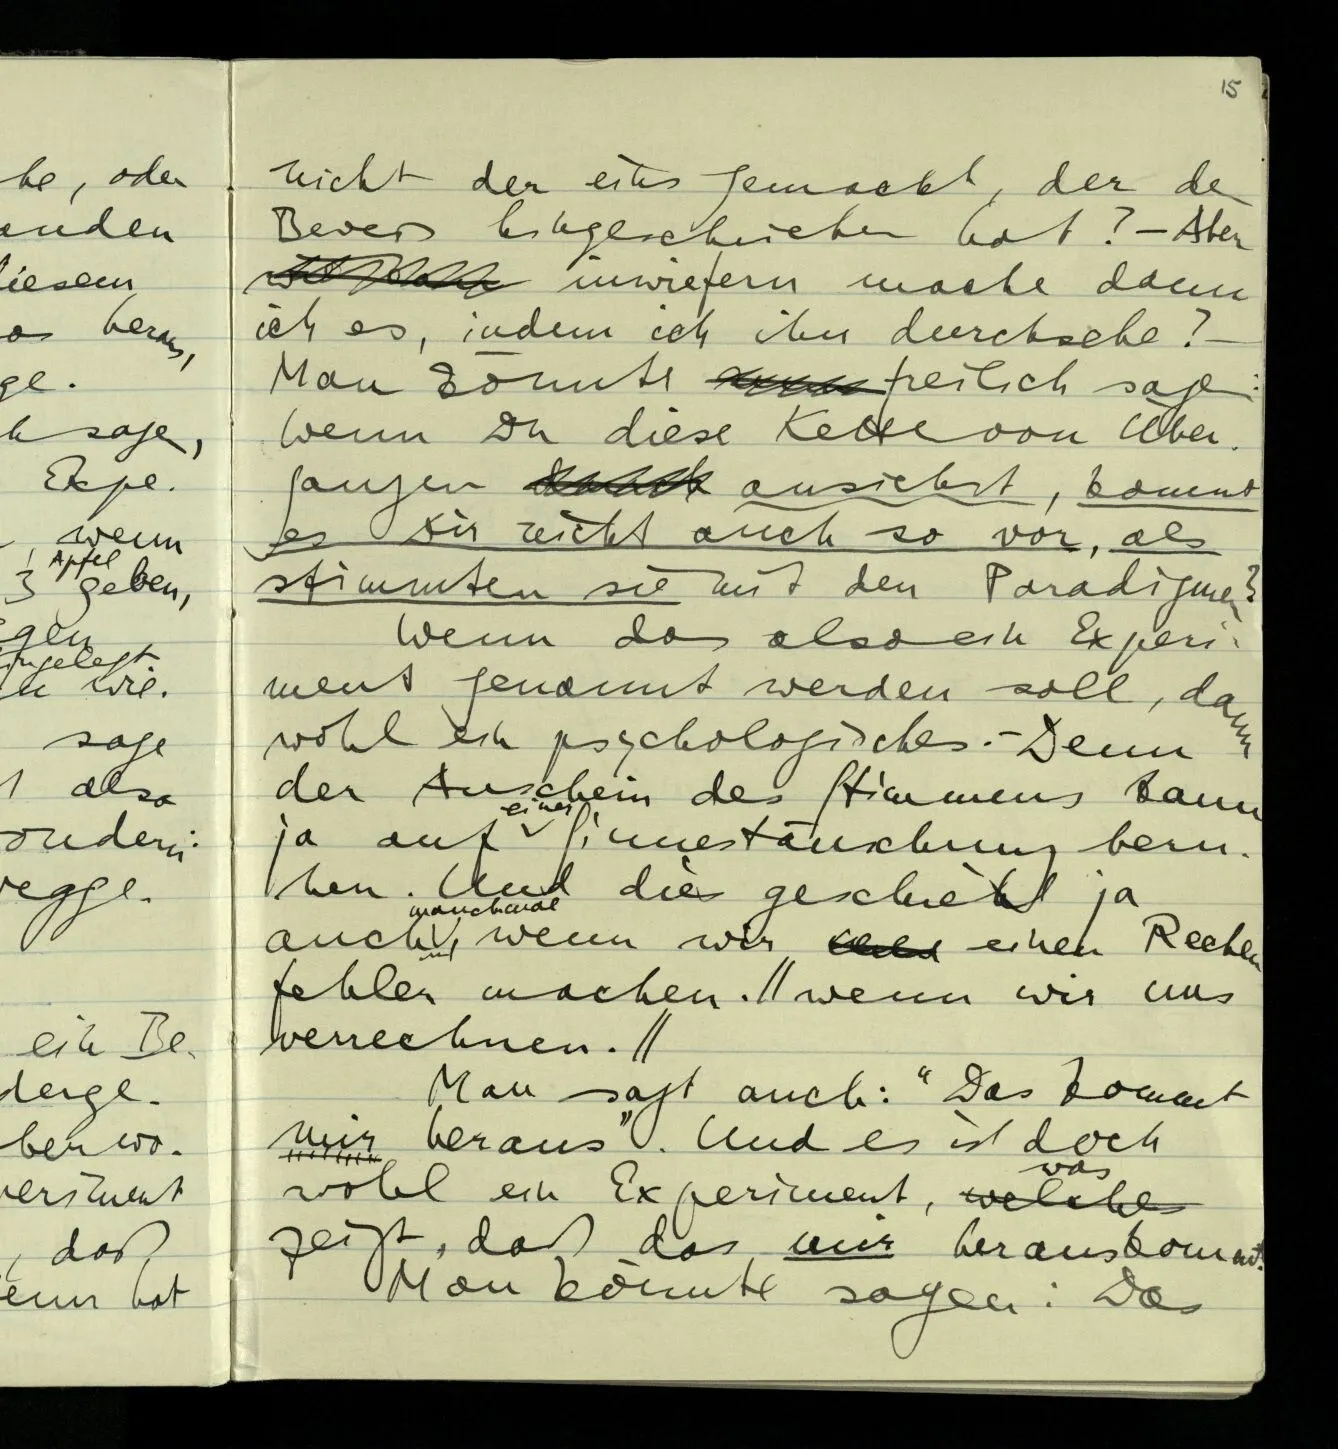 15
be, oder
anden
diesem
as heraus,
ge.
h sage,
Expe-
, wenn
Äpfel
3 geben,
egen
eingelegt
en wie-
sage
t also
sondern:
wegge-
ein Be-
derge-
ber wo-
periment
, daß
denn hat
nicht der eins gemacht, der de
Beweis hingeschrieben hat? – Aber
inwiefern mache dann
ich es, indem ich ihn durchsehe? –
Man könnte freilich sagen:
Wenn Du diese Kette von Über-
gängen ansiehst, kommt
es dir nicht auch so vor, als
stimmten sie mit den Paradigmen?
Wenn das also ein Experi-
ment genannt werden soll, dann
wohl ein psychologisches. – Denn
der Anschein des Stimmens kann
einer
ja auf Sinnestäuschung beru-
hen. Und dies geschieht ja
manchmal
auch, wenn wir einen Rechen
fehler machen. // wenn wir uns
verrechnen. //
Man sagt auch: “Das kommt
mir heraus”. Und es ist doch
was
wohl ein Experiment, welches
zeigt, daß das mir herauskommt.
Man könnte sagen: Das